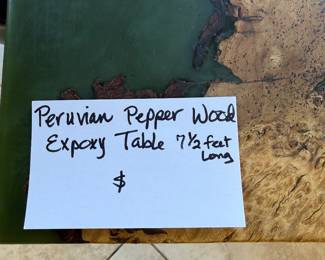 Peruvian Pepper Wood
Expoxy Table 7½ feet
Long
$